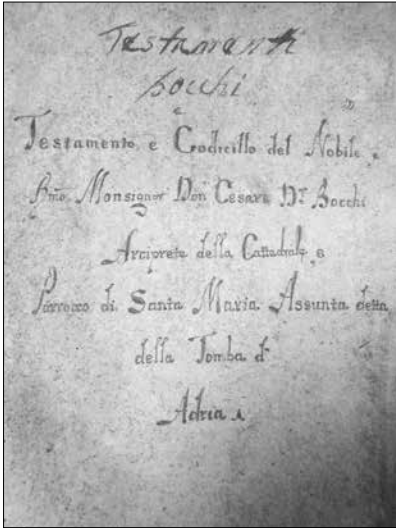 Testamenti
Bocchi
e
Testamento e Codicillo del Nobile, e
Rmo Monsignor Don Cesare Dr Bocchi
Arciprete della Cattedrale, e
Parroco di Santa Maria Assunta detta
della Tomba di
Adria